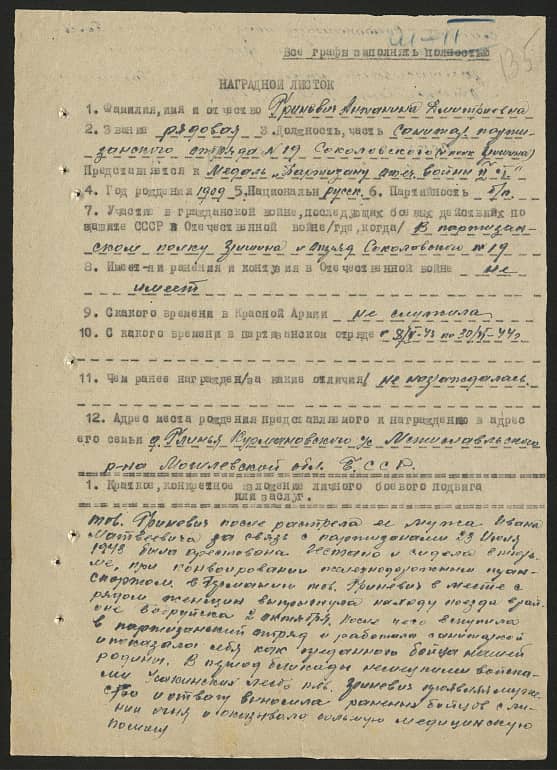 135
Все графы заполнять полностью
НАГРАДНОЙ ЛИСТОК
1. Фамилия, имя и отчество Гриневич Антонина Дмитриевна
2. Звание рядовая 3. Должность, часть санитар парти-
занского отряда №19 Соколовского (полк Гришина)
Представляется к Медаль „Партизану отеч. войны II ст."
4. Год рождения 1909 5. Национальн русск. 6. Партийность б/п.
7. Участие в гражданской войне, последующих боевых действиях по
защите СССР и Отечественной войне /где, когда/ В партизан-
ском полку Гришина отряд Соколовского №19
8. Имеет-ли ранения и контузия в Отечественной войне не
имеет
9. Скакого времени в Красной Армии не служила
10. С какого времени в партизанском отряде с
11. Чем ранее награжден/за какие отличия/ не награждалась.
12. Адрес места рождения представляемого и награждению в адрес
его семьи д. Глинья Курмановского с/с Мстиславльского
р-на Могилевской обл. БССР.
1. Краткое, конкретное изложение личного боевого подвига
или заслуг.
тов. Гриневич после растрела ее мужа Ивана
Матвеевича за связь с партизанами 23 Июля
1943 была арестована Гестапо и сидела в тюрь-
ме, при конвоировании железнодорожным тран-
спортом в Германию тов. Гриневич в месте с
рядом женщин выпрыгнула на ходу поезда в рай-
оне Бобруйска 2 октября, после чего вступила
в партизанский отряд и работала санитаркой
и показала себя как преданного бойца нашей
родины. В период блокады немецкими войска-
ми тов. Гриневич проявляя муже-
ство и отвагу выносила раненых бойцов с ли-
нии огня и оказывала больную медицинскую
помощь